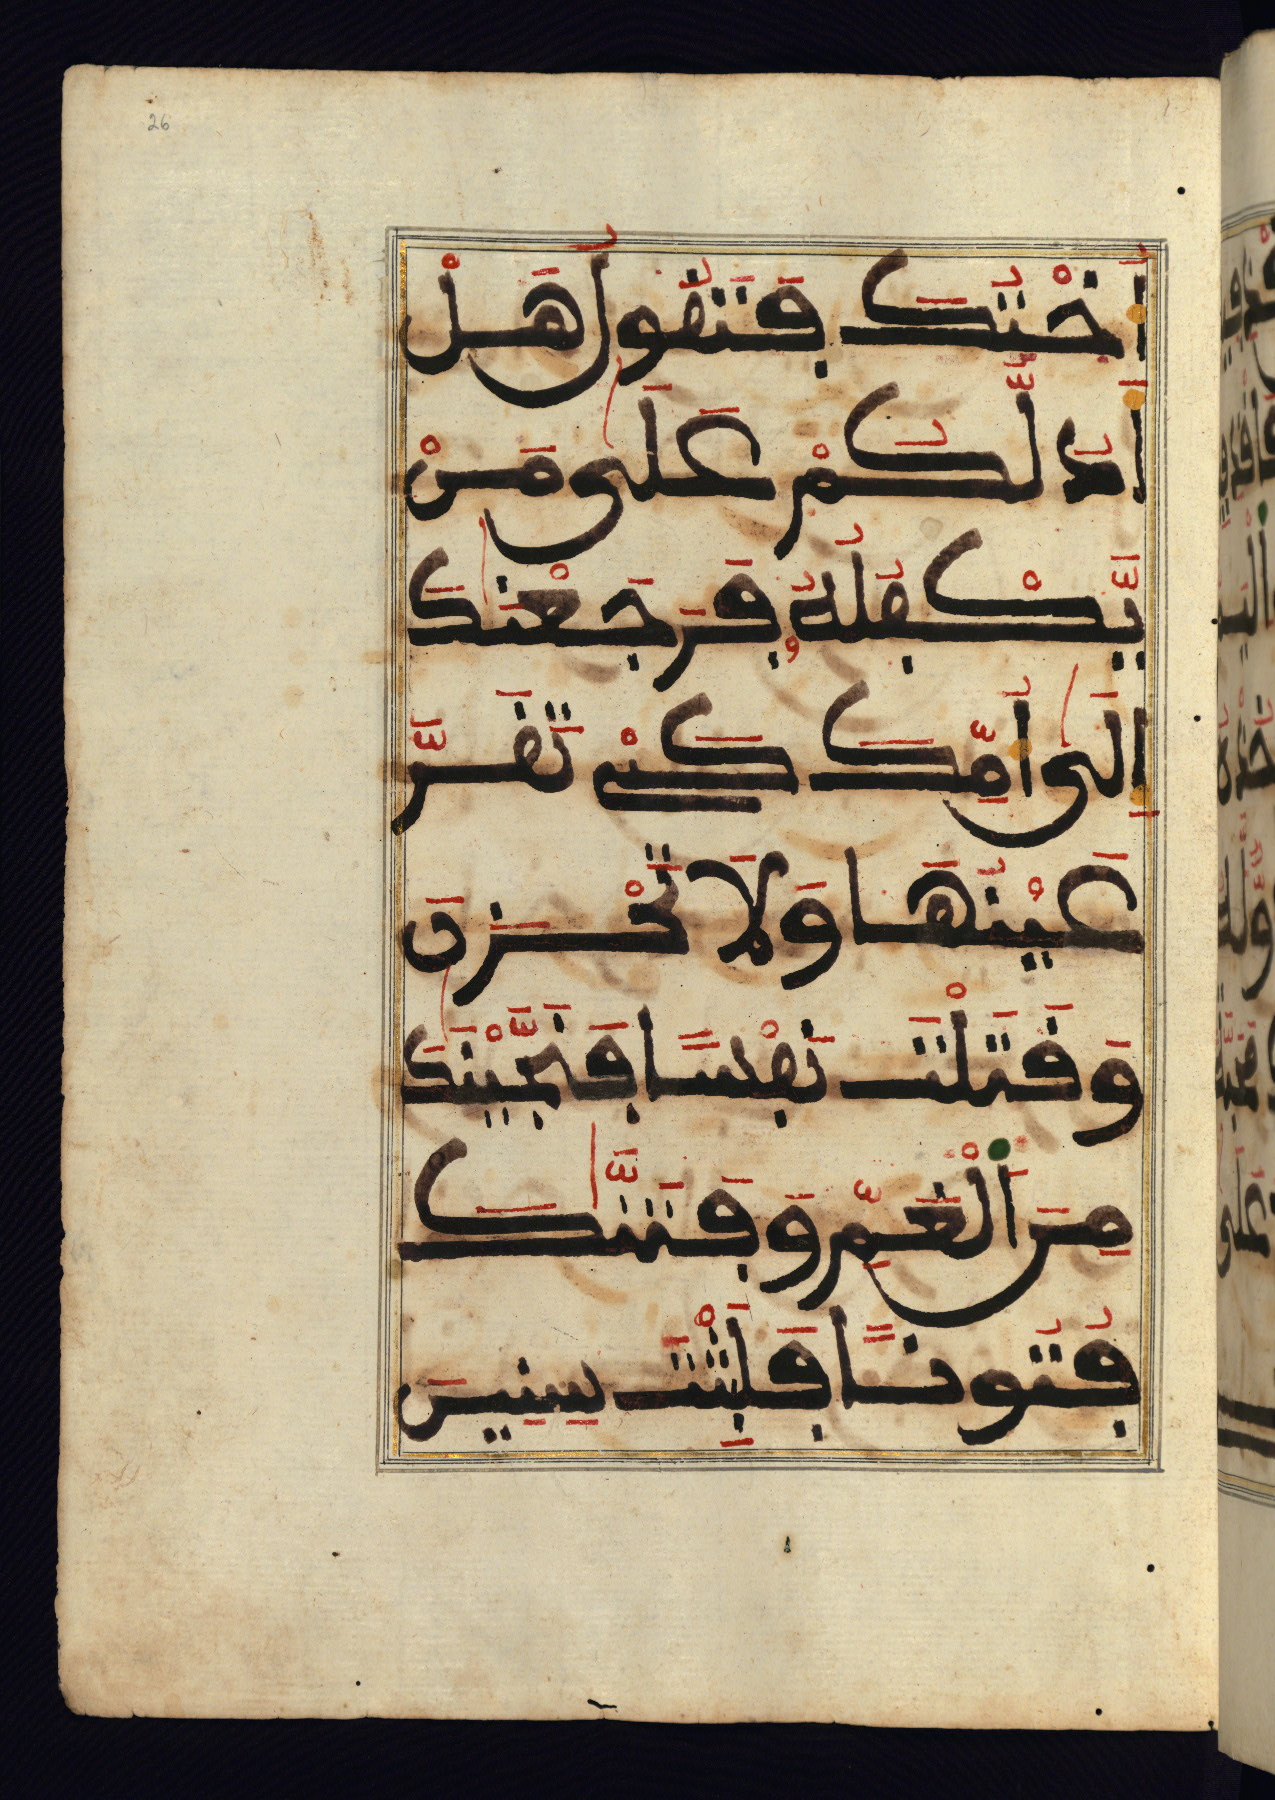 26
اُخْتُكَ فَتَقُولُ هَلْ
اَدُلُّكُمْ عَلَى مَنْ
يَّكْفُلُهُ فَرَجَعْنٰكَ
اِلٰى اُمِّكَ كَىْ تَقَرَّ
عَيْنُهَا وَلَا تَحْزَنَ
وَقَتَلْتَ نَفْسًا فَنَجَّيْنٰكَ
مِنَ الْغَمِّ وَفَتَنّٰكَ
فُتُونًا فَلَبِثْتَ سِنِينَ